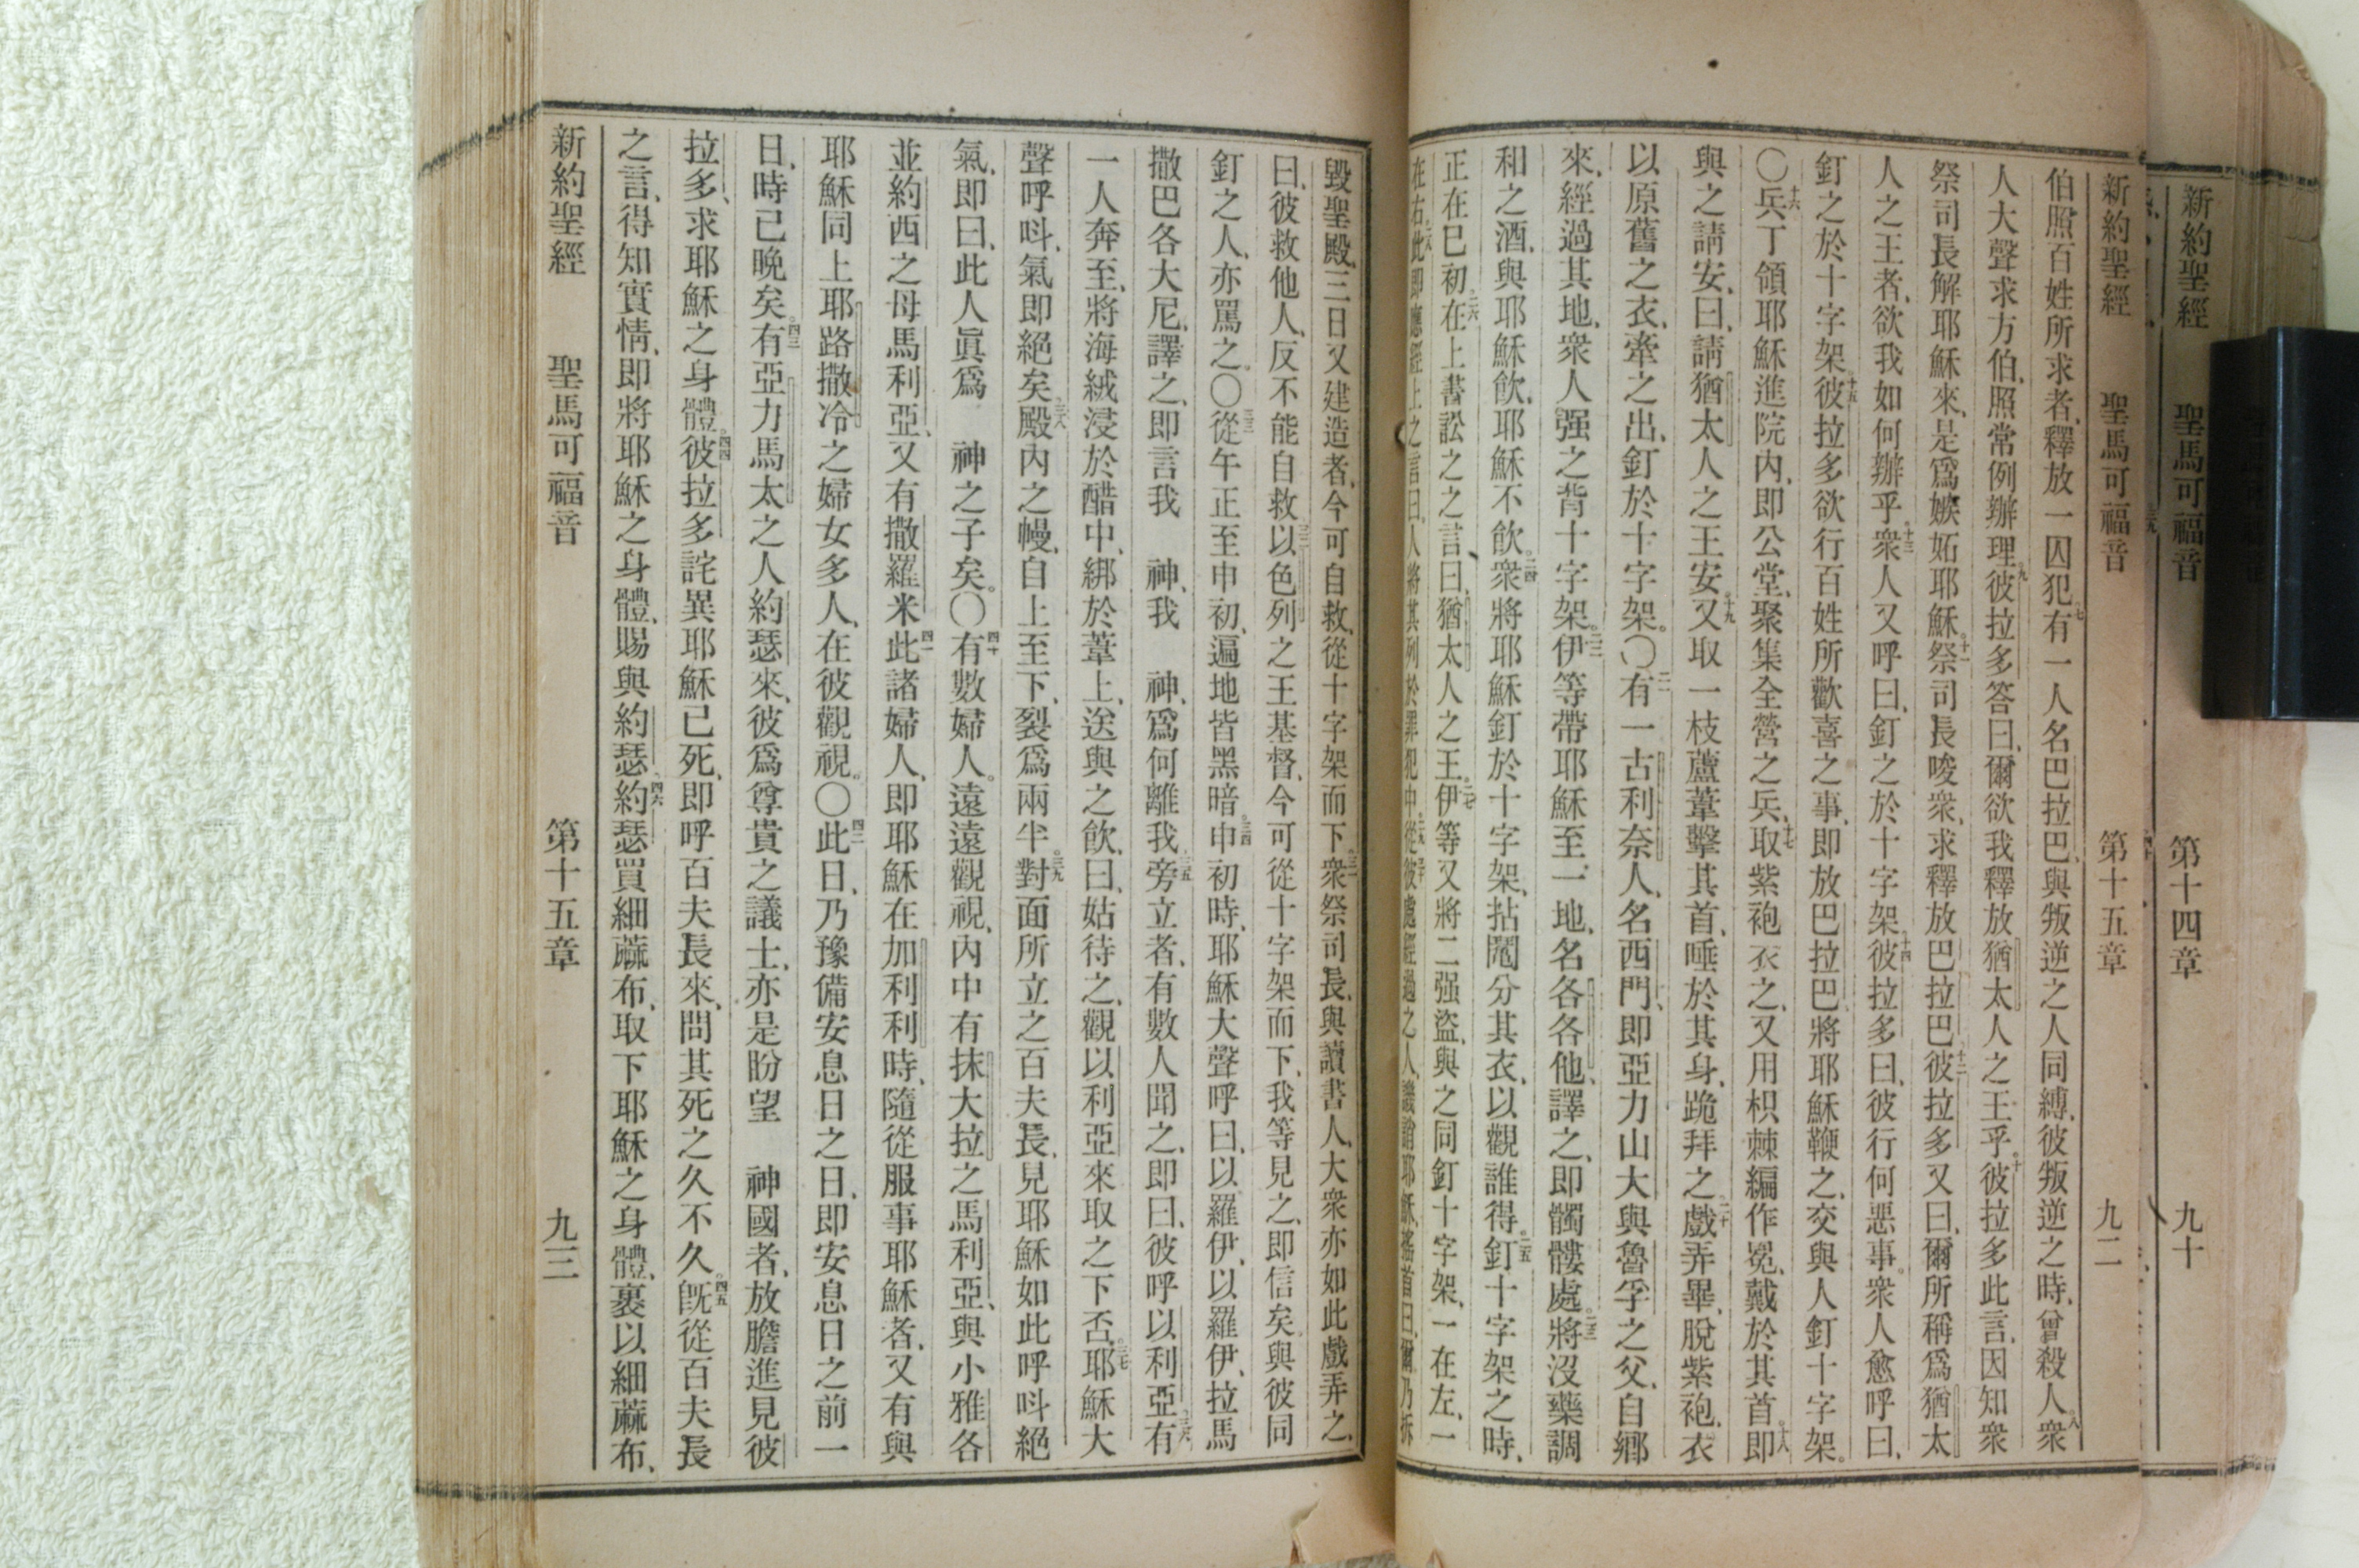 新約聖經 聖馬可福音 第十四章 九十
新約聖經 聖馬可福音 第十五章 九二
伯照百姓所求者、釋放一囚犯。七有一人名巴拉巴、與叛逆之人同縛、彼叛逆之時、曾殺人。八衆
人大聲求方伯、照常例辦理。九彼拉多答曰、爾欲我釋放猶太人之王乎。十彼拉多此言、因知衆
祭司長解耶穌來、是爲嫉妬耶穌。十一祭司長唆衆、求釋放巴拉巴。十二彼拉多又曰、爾所稱爲猶太
人之王者、欲我如何辦乎。十三衆人又呼曰、釘之於十字架。十四彼拉多曰、彼行何惡事。衆人愈呼曰、
釘之於十字架。十五彼拉多欲行百姓所歡喜之事、即放巴拉巴、將耶穌鞭之、交與人釘十字架。
〇十六兵丁領耶穌進院內、即公堂、聚集全營之兵、十七取紫袍衣之、又用枳棘編作冕、戴於其首。十八即
與之請安、曰、請猶太人之王安。十九又取一枝蘆葦擊其首、唾於其身、跪拜之。二十戲弄畢、脫紫袍、衣
以原舊之衣、牽之出、釘於十字架。〇二一有一古利奈人、名西門、即亞力山大與魯孚之父、自鄉
來、經過其地、衆人强之背十字架。二二伊等帶耶穌至一地、名各各他、譯之、即髑髏處。二三將沒藥調
和之酒、與耶穌飲、耶穌不飲。二四衆將耶穌釘於十字架、拈鬮分其衣、以觀誰得。二五釘十字架之時、
正在巳初。二六在上書訟之之言、曰、猶太人之王。二七伊等又將二强盜、與之同釘十字架、一在左、一
在右。二八此即應經上之言曰、人將其列於罪犯中。二九從彼處經過之人、譏誚耶穌、搖首曰、爾乃拆
毀聖殿、三日又建造者、今可自救、從十字架而下。三一衆祭司長、與讀書人、大衆亦如此戲弄之、
曰、彼救他人、反不能自救。三二以色列之王基督、今可從十字架而下、我等見之、即信矣。與彼同
釘之人、亦罵之。〇三三從午正至申初、遍地皆黑暗。三四申初時、耶穌大聲呼曰、以羅伊、以羅伊、拉馬
撒巴各大尼、譯之、即言我 神、我 神、爲何離我。三五旁立者、有數人聞之、即曰、彼呼以利亞。三六有
一人奔至、將海絨浸於醋中、綁於葦上、送與之飲、曰、姑待之、觀以利亞來取之下否。三七耶穌大
聲呼呌、氣即絕矣。三八殿內之幔、自上至下、裂爲兩半。三九對面所立之百夫長、見耶穌如此呼呌絕
氣、即曰、此人眞爲 神之子矣。〇四十有數婦人。遠遠觀視、內中有抹大拉之馬利亞、與小雅各
並約西之母馬利亞、又有撒羅米。四一此諸婦人、即耶穌在加利利時、隨從服事耶穌者、又有與
耶穌同上耶路撒冷之婦女多人、在彼觀視。〇四二此日、乃豫備安息日之日、即安息日之前一
日、時已晚矣。四三有亞力馬太之人約瑟來、彼爲尊貴之議士、亦是盼望 神國者、放膽進見彼
拉多、求耶穌之身體。四四彼拉多詫異耶穌已死、即呼百夫長來、問其死之久不久。四五旣從百夫長
之言、得知實情、即將耶穌之身體、賜與約瑟。四六約瑟買細蔴布、取下耶穌之身體、裹以細蔴布、
新約聖經 聖馬可福音 第十五章 九三